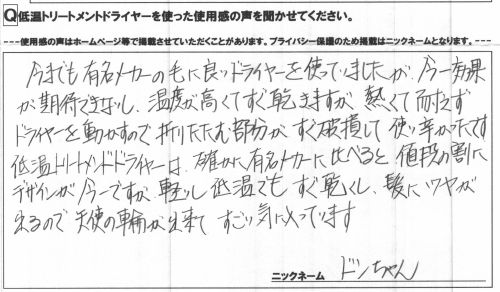 Q低温トリートメントドライヤーを使った使用感の声を聞かせてください。
---使用感の声はホームページ等で掲載させていただくことがあります。プライバシー保護のため掲載はニックネームとなります。---
今までも有名メーカーの毛に良いドライヤーを使っていましたが、今一効果
が期待できないし、温度が高くてすぐ乾きますが熱くて耐えず
ドライヤーを動かすので折りたたむ部分がすぐ破損して使い辛かったです
低温トリートメントドライヤーは、確かに有名メーカーに比べると値段の割に
デザインが今一ですが、軽いし低温でもすぐ乾くし、髪にツヤが
出るので天使の輪が出来てすごい気に入っています
ニックネーム ドンちゃん